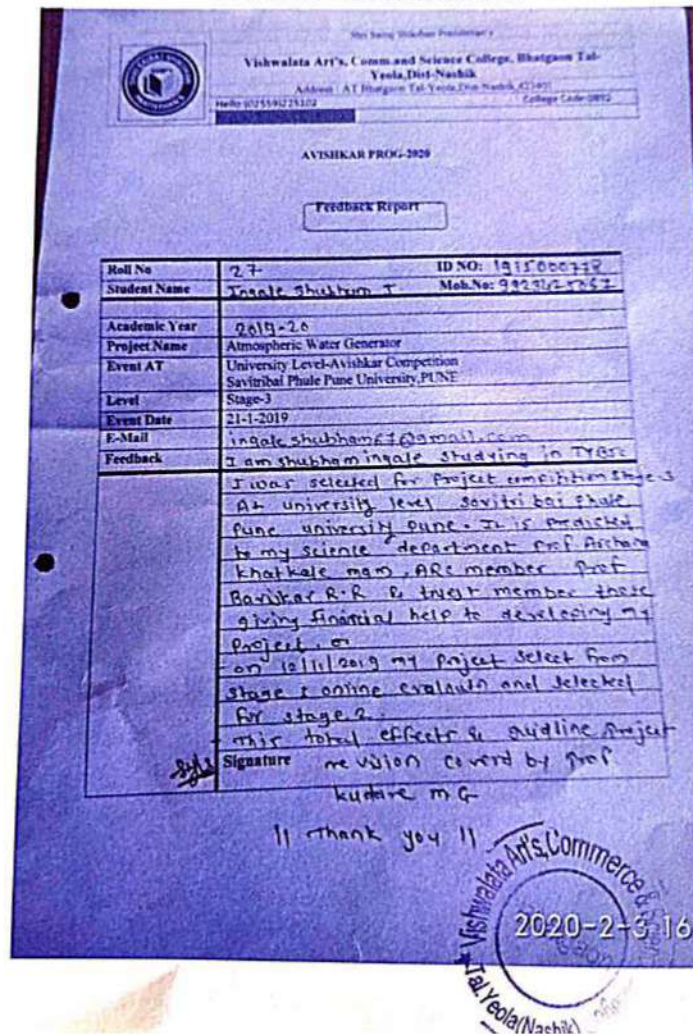 Vishwalata Art's, Comm.and Science College, Bhatgaon Tal-
Yeola,Dist-Nashik
Address : AT Bhatgaon Tal-Yeola,Dist-Nashik,423401
College Code-0892
AVISHKAR PROG-2020
Feedback Report
Roll No 27 ID NO: 1915000778
Student Name Ingale Shubham T Mob.No:
Academic Year 2019-20
Project Name Atmospheric Water Generator
Event AT University Level-Avishkar Competition
Savitribai Phule Pune University,PUNE
Level Stage-3
Event Date 21-1-2019
E-Mail ingaleshubham67@gmail.com
Feedback I am shubham ingale studying in TYBSc
I was selected for Project competition stage-3
At university level savitri bai phule
Pune university pune. It is predicted
to my science department Prof Archana
khatkale mam, ARC member Prof
Baviskar R.R & trust member those
giving financial help to developing my
project, or
on 12/11/2019 my Project select from
stage 1 online and selected
for stage 2.
This total effects & guidline project
Signature revision coverd by Prof.
kudare m G
|| Thank you ||
Vishwalata Art's,Commerce &
Tal.Yeola(Nashik)
2020-2-3 16